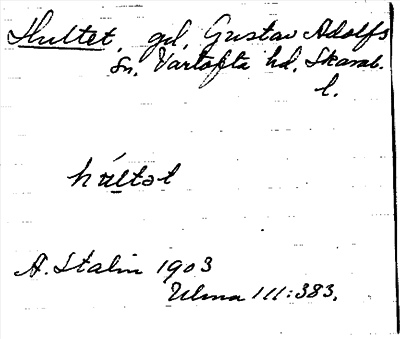 Hultet, gd, Gustav Adolfs
sn, Vartofta hd, Skarab.
l.
húltət
A. Stalin 1903
Ulma 111:383.